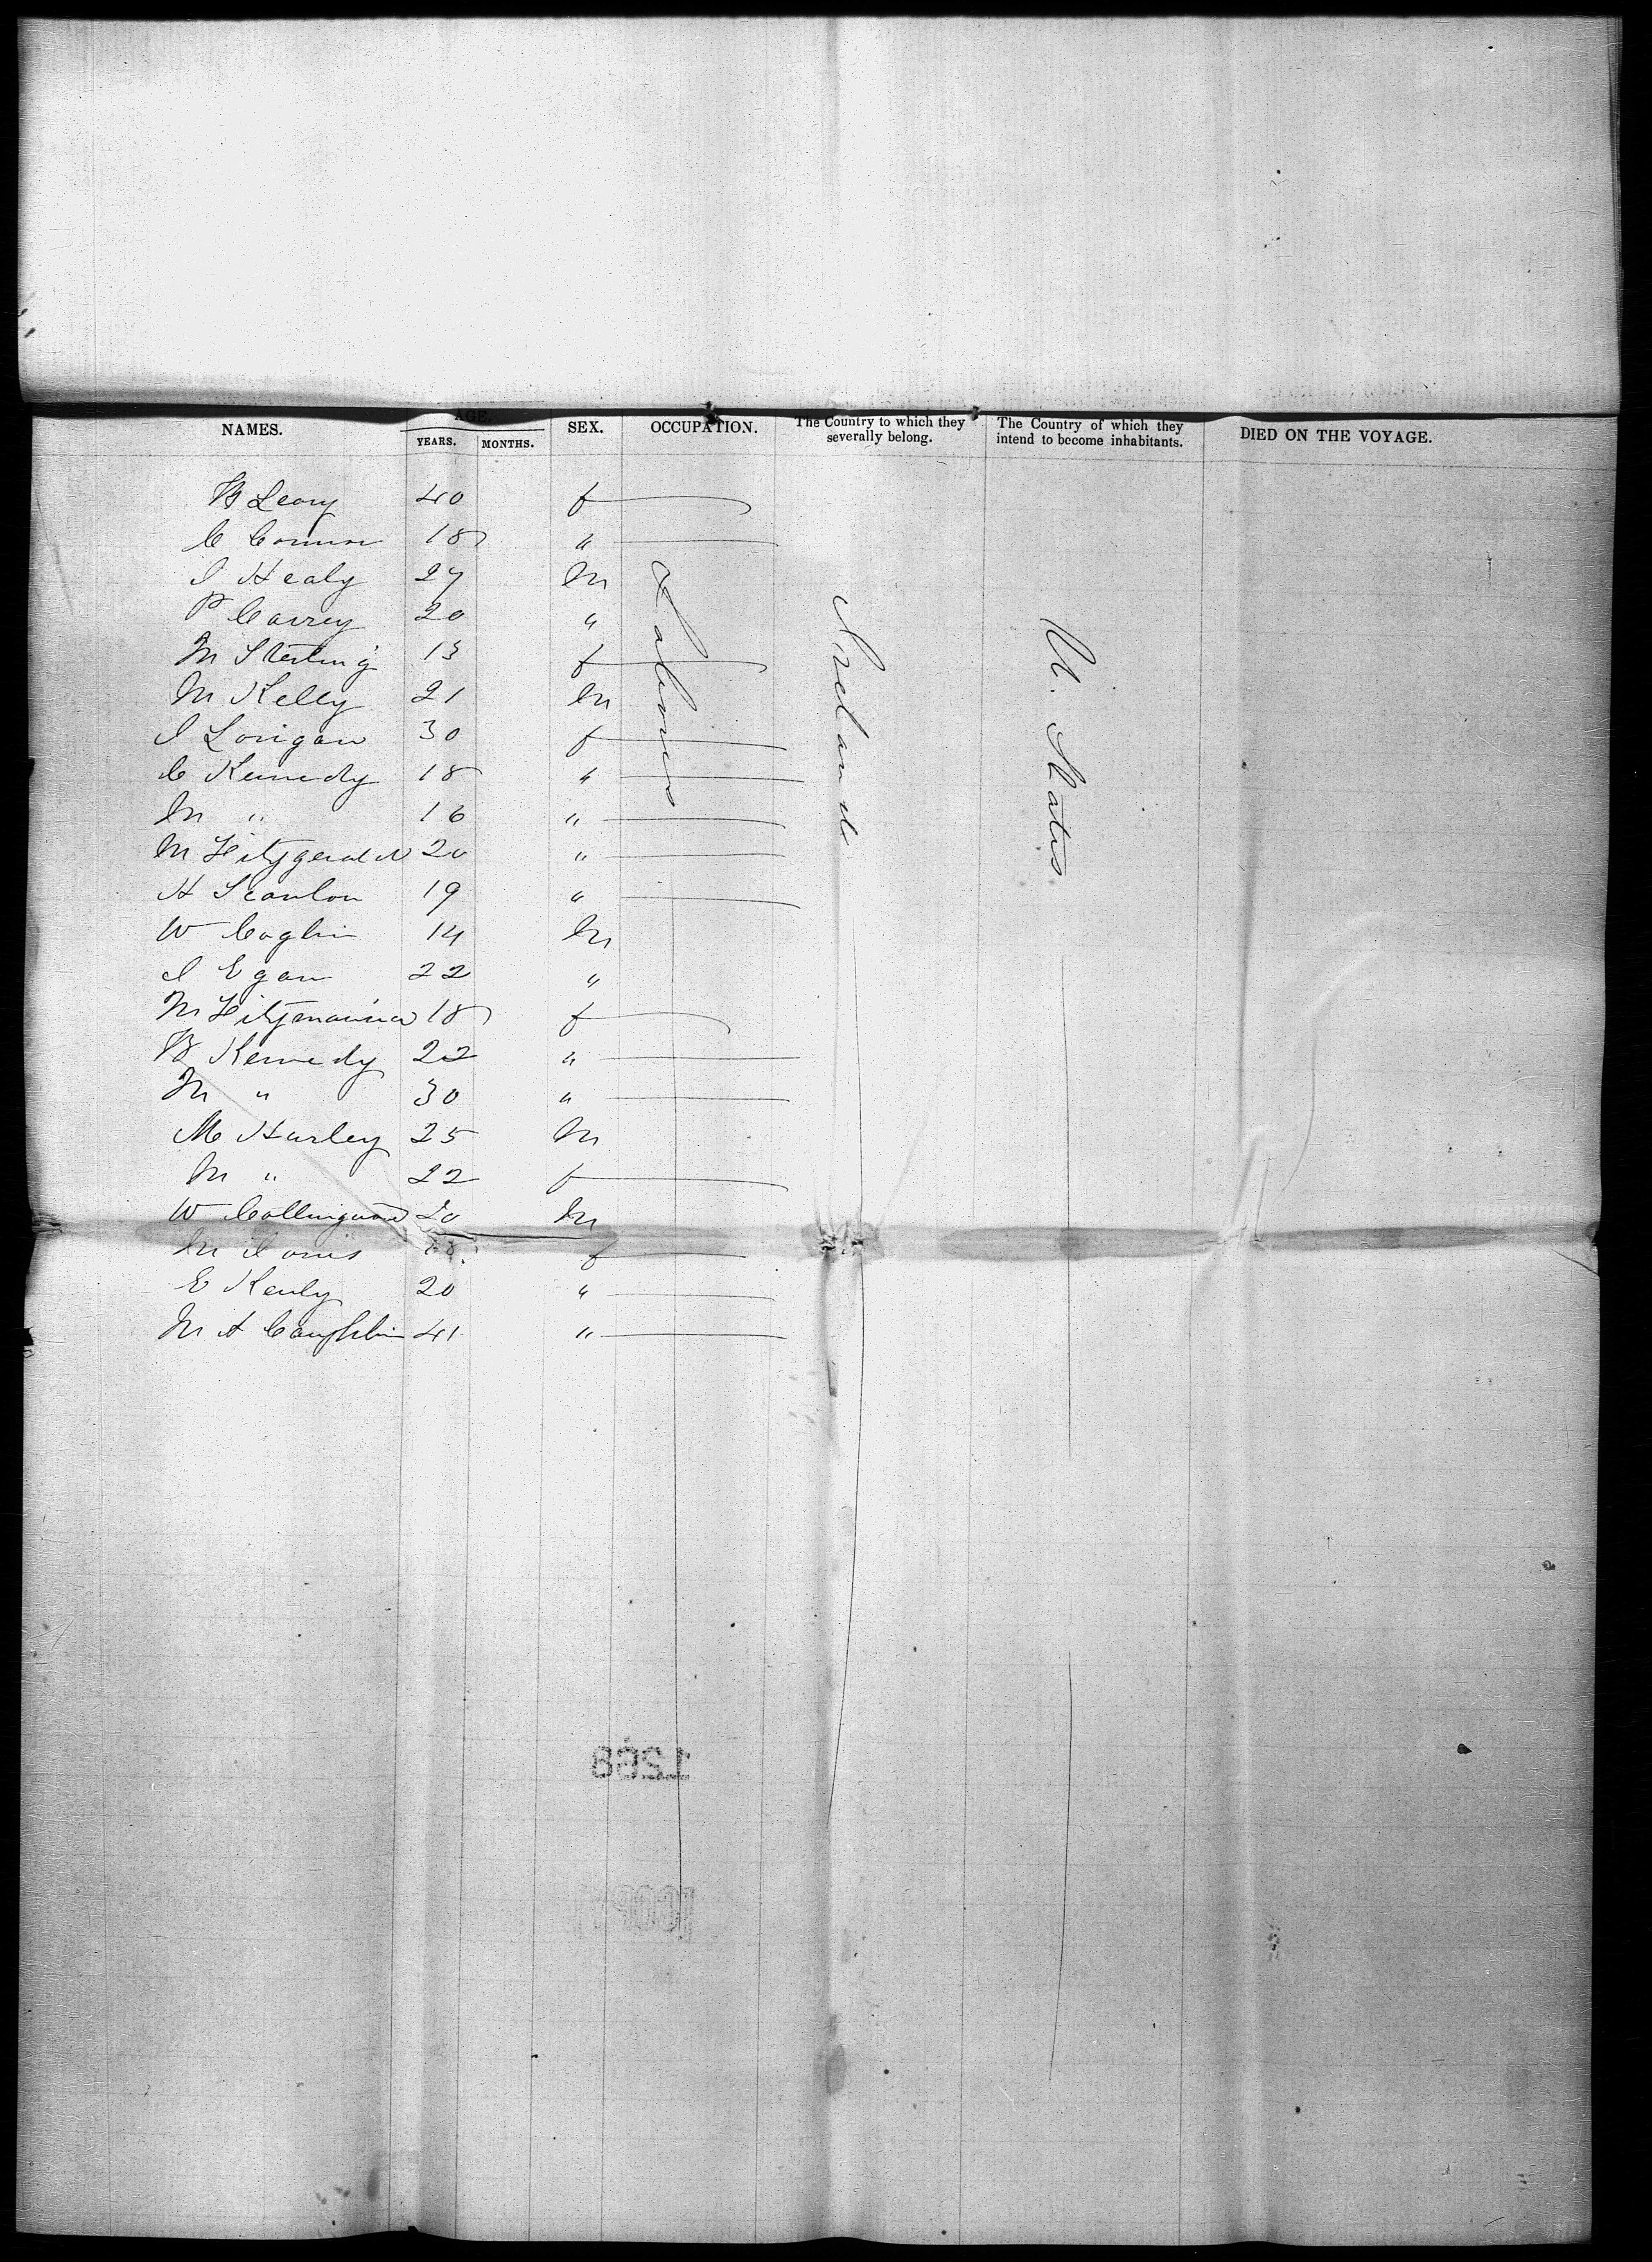 AGE.
NAMES. YEARS. MONTHS. SEX. OCCUPATION. The Country to which they severally belong. The Country of which they intend to become inhabitants. DIED ON THE VOYAGE.
B Leary 40 f
C Connor 18 "
J Healy 27 M
P Carrey 20 "
M Sterling 13 f
M Kelly 21 M
J Lonigan 30 f
C Kennedy 18 "
M " 16 "
M Fitzgerald 20 "
H Scanlon 19 "
W Coglin 14 M
J Egan 22 "
M Fitzmaurice 18 f
B Kennedy 22 "
M " 30 "
M Hurley 25 M
M " 22 f
W Collingwood 20 M
M f
E Kealy 20 "
M A Caughlin 41 "
Labourers
Ireland
U. States
1268